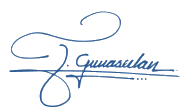 J. Gunasulan